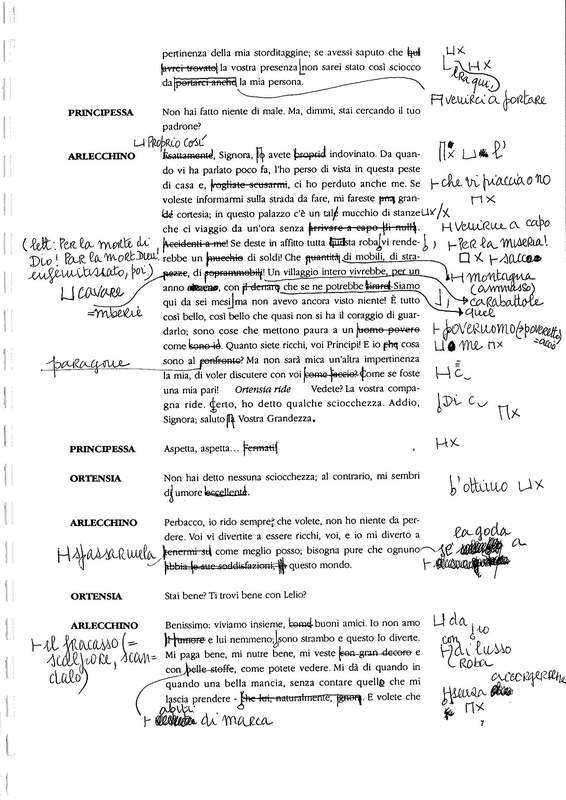 pertinenza della mia storditaggine; se avessi saputo che qui
avrei trovato la vostra presenza non sarei stato così sciocco
da portarci anche la mia persona.
era qui,
venirci a portare
PRINCIPESSA Non hai fatto niente di male. Ma, dimmi, stai cercando il tuo
padrone?
Proprio così
ARLECCHINO Esattamente, Signora, lo avete proprio indovinato. Da quan-
do vi ha parlato poco fa, l'ho perso di vista in questa peste
di casa e, vogliate scusarmi, ci ho perduto anche me. Se
che vi piaccia o no
voleste informarmi sulla strada da fare, mi fareste una gran-
de cortesia; in questo palazzo c'è un tale mucchio di stanze
che ci viaggio da un'ora senza arrivare a capo di nulla.
venirne a capo
Accidenti a me! Se deste in affitto tutta questa roba vi rende-
Per la miseria!
rebbe un mucchio di soldi! Che quantità di mobili, di stra-
sacco
pezze, di soprammobili! Un villaggio intero vivrebbe, per un
montagna
(ammasso)
anno con il denaro che se ne potrebbe tirare! Siamo
carabattole
qui da sei mesi ma non avevo ancora visto niente! È tutto
quel
così bello, così bello che quasi non si ha il coraggio di guar-
darlo; sono cose che mettono paura a un uomo povero
poveruomo (poveretto)
come sono io. Quanto siete ricchi, voi Principi! E io che cosa
me
sono al confronto? Ma non sarà mica un'altra impertinenza
la mia, di voler discutere con voi come faccio? Come se foste
una mia pari! Ortensia ride Vedete? La vostra compa-
gna ride. Certo, ho detto qualche sciocchezza. Addio,
Di c
Signora; saluto la Vostra Grandezza.
(lett: Per la morte di
Dio! Par la mort Dieu!
poi)
cavare
paragone
PRINCIPESSA Aspetta, aspetta... Fermati!
ORTENSIA Non hai detto nessuna sciocchezza; al contrario, mi sembri
di umore eccellente.
d'ottimo
ARLECCHINO Perbacco, io rido sempre; che volete, non ho niente da per-
dere. Voi vi divertite a essere ricchi, voi, e io mi diverto a
tenermi su come meglio posso; bisogna pure che ognuno
abbia le sue soddisfazioni, questo mondo.
spassarmela
se la goda
a
ORTENSIA Stai bene? Ti trovi bene con Lelio?
ARLECCHINO Benissimo: viviamo insieme, come buoni amici. Io non amo
da
il rumore e lui nemmeno; sono strambo e questo lo diverte.
io
Mi paga bene, mi nutre bene, mi veste con gran decoro e
con
di lusso
con belle stoffe, come potete vedere. Mi dà di quando in
roba
quando una bella mancia, senza contare quello che mi
lascia prendere - che lui, naturalmente, ignora. E volete che
senza
accorgersene
il fracasso (=
scalpore, scan=
dalo)
abiti
di marca
7